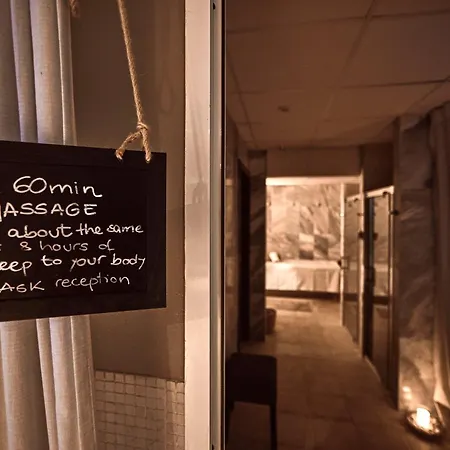 60min
MASSAGE
about the same
8 hours of
eep to your body
ASK reception